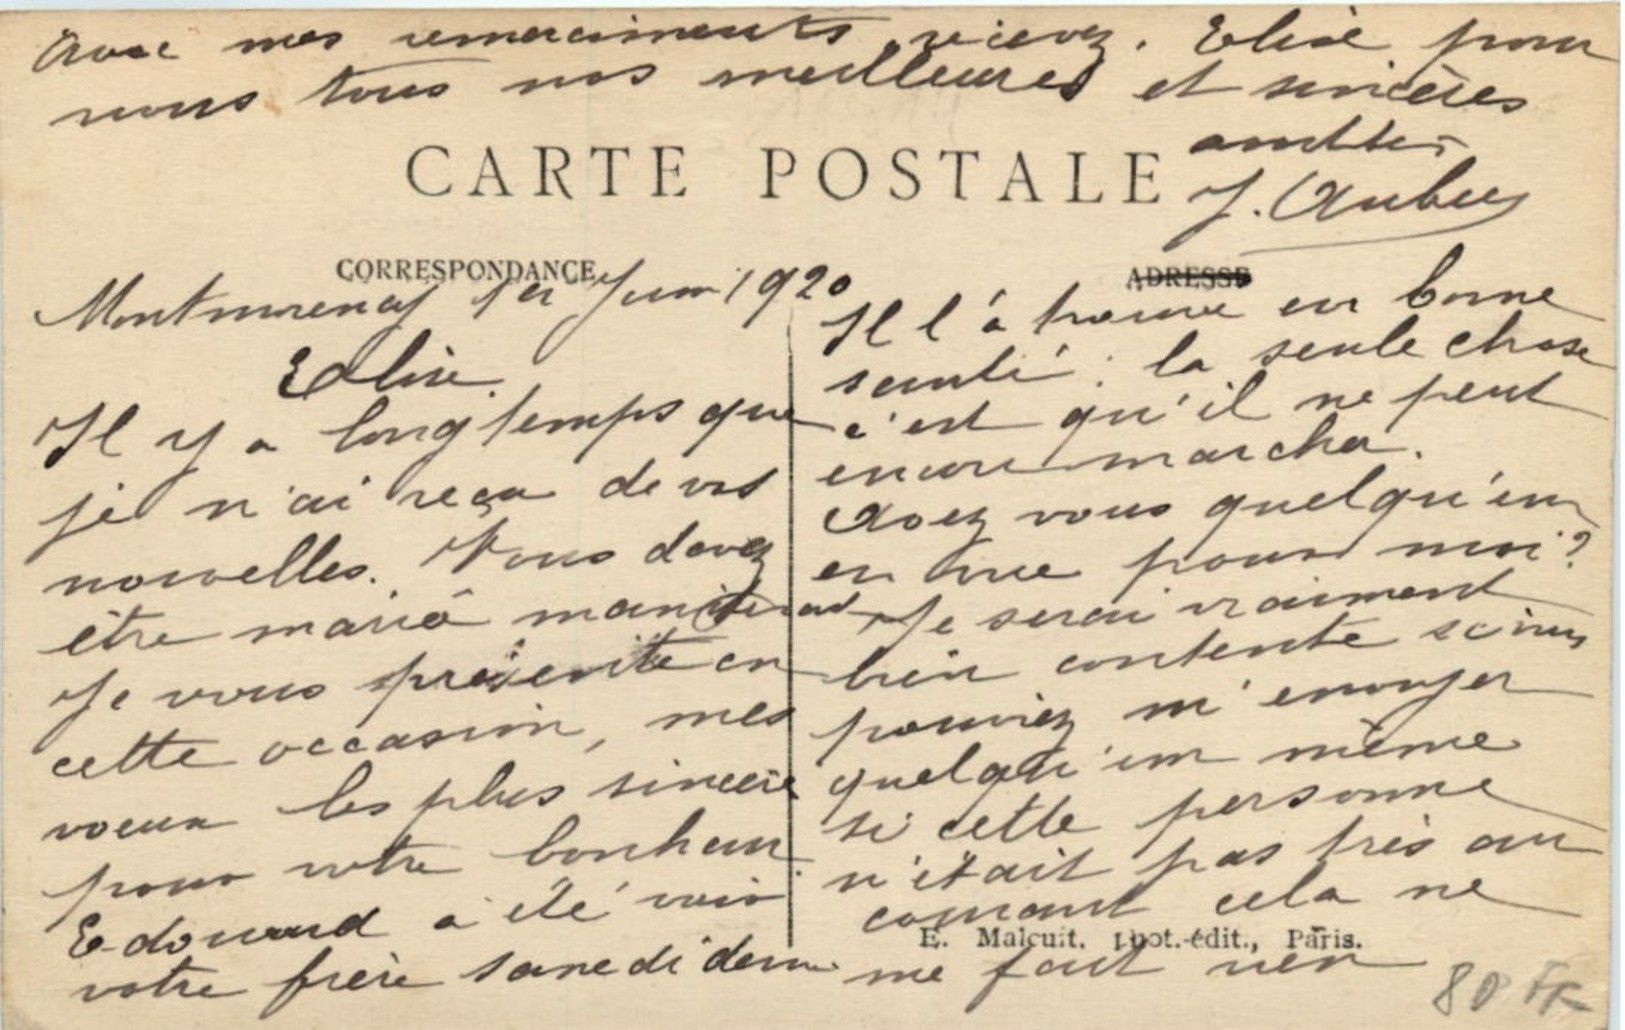 Avec mes remerciments recevez, Elise pour
nous tous nos meilleures et sincères
amitiés
J. Aubery
CARTE POSTALE
CORRESPONDANCE
ADRESSE
Montmorency 1er Juin 1920
Elise.
Il y a longtemps que
je n'ai reçu de vos
nouvelles. Vous devez
être mariée maintenant
Je vous présente en
cette occasion, mes
voeux les plus sincère
pour votre bonheur.
Edouard a été voir
votre frère samedi dern
Il l'a trouvé en bonne
santé ; la seule chose
c'est qu'il ne peut
encore marcher.
Avez vous quelqu'un
en vue pour moi ?
Je serai vraiment
bien contente si vous
pouviez m'envoyer
quelqu'un même
si cette personne
n'était pas très au
courant cela ne
me fait rien
E. Malcuit, phot.-édit., Paris.
80 FF